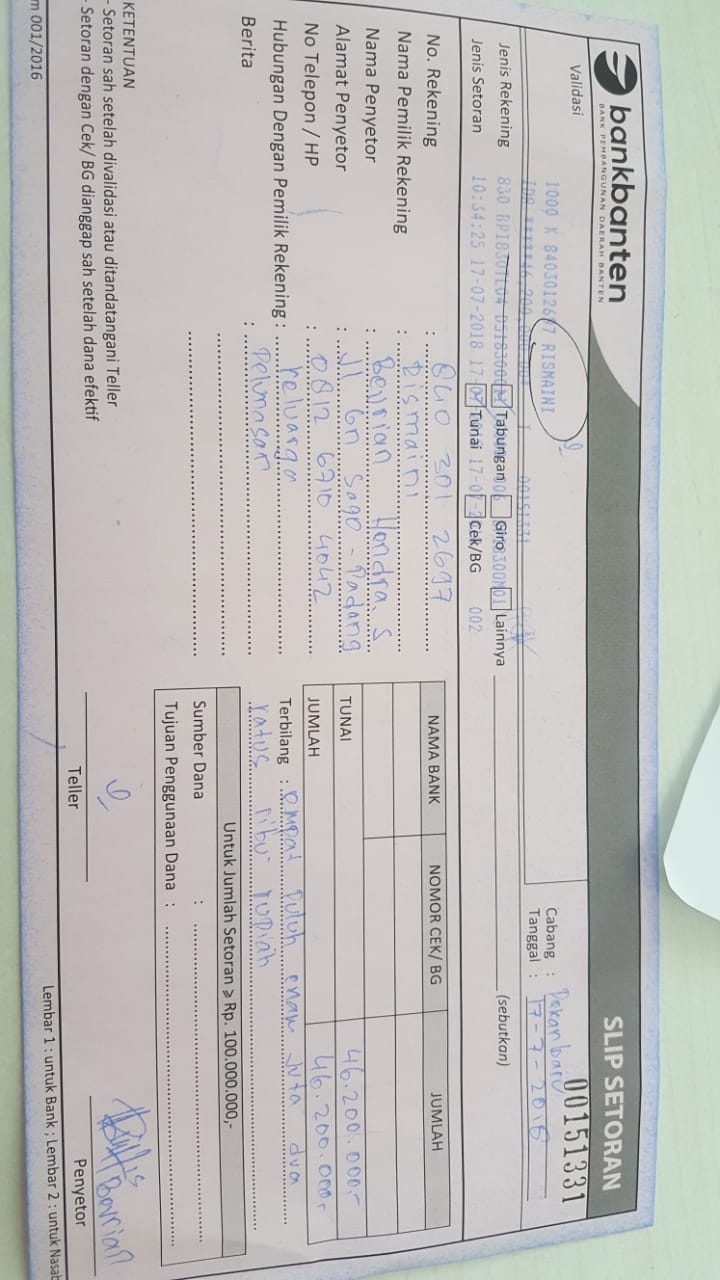 bankbanten
BANK PEMBANGUNAN DAERAH BANTEN
SLIP SETORAN
00151331
Validasi
1000 K 8403012697 RISMAINI
00151331
Cabang : Pekanbaru
Tanggal : 17-7-2018
Jenis Rekening 830 Tabungan Giro Lainnya (sebutkan)
Jenis Setoran 10:34:25 17-07-2018 Tunai Cek/BG 002
No. Rekening : 840 301 2697
Nama Pemilik Rekening : Rismaini
Nama Penyetor : Hendra. S
Alamat Penyetor : Jl Gn Sago - Padang
No Telepon / HP : 0812 6710 4042
Hubungan Dengan Pemilik Rekening : keluarga
Berita : Pelunasan
NAMA BANK NOMOR CEK/ BG JUMLAH
TUNAI 46.200.000,-
JUMLAH 46.200.000,-
Terbilang : empat puluh enam juta dua
ratus ribu rupiah
Untuk Jumlah Setoran ≥ Rp. 100.000.000,-
Sumber Dana :
Tujuan Penggunaan Dana :
KETENTUAN
- Setoran sah setelah divalidasi atau ditandatangani Teller
- Setoran dengan Cek/ BG dianggap sah setelah dana efektif
Teller
Penyetor
m 001/2016
Lembar 1 : untuk Bank ; Lembar 2 : untuk Nasab